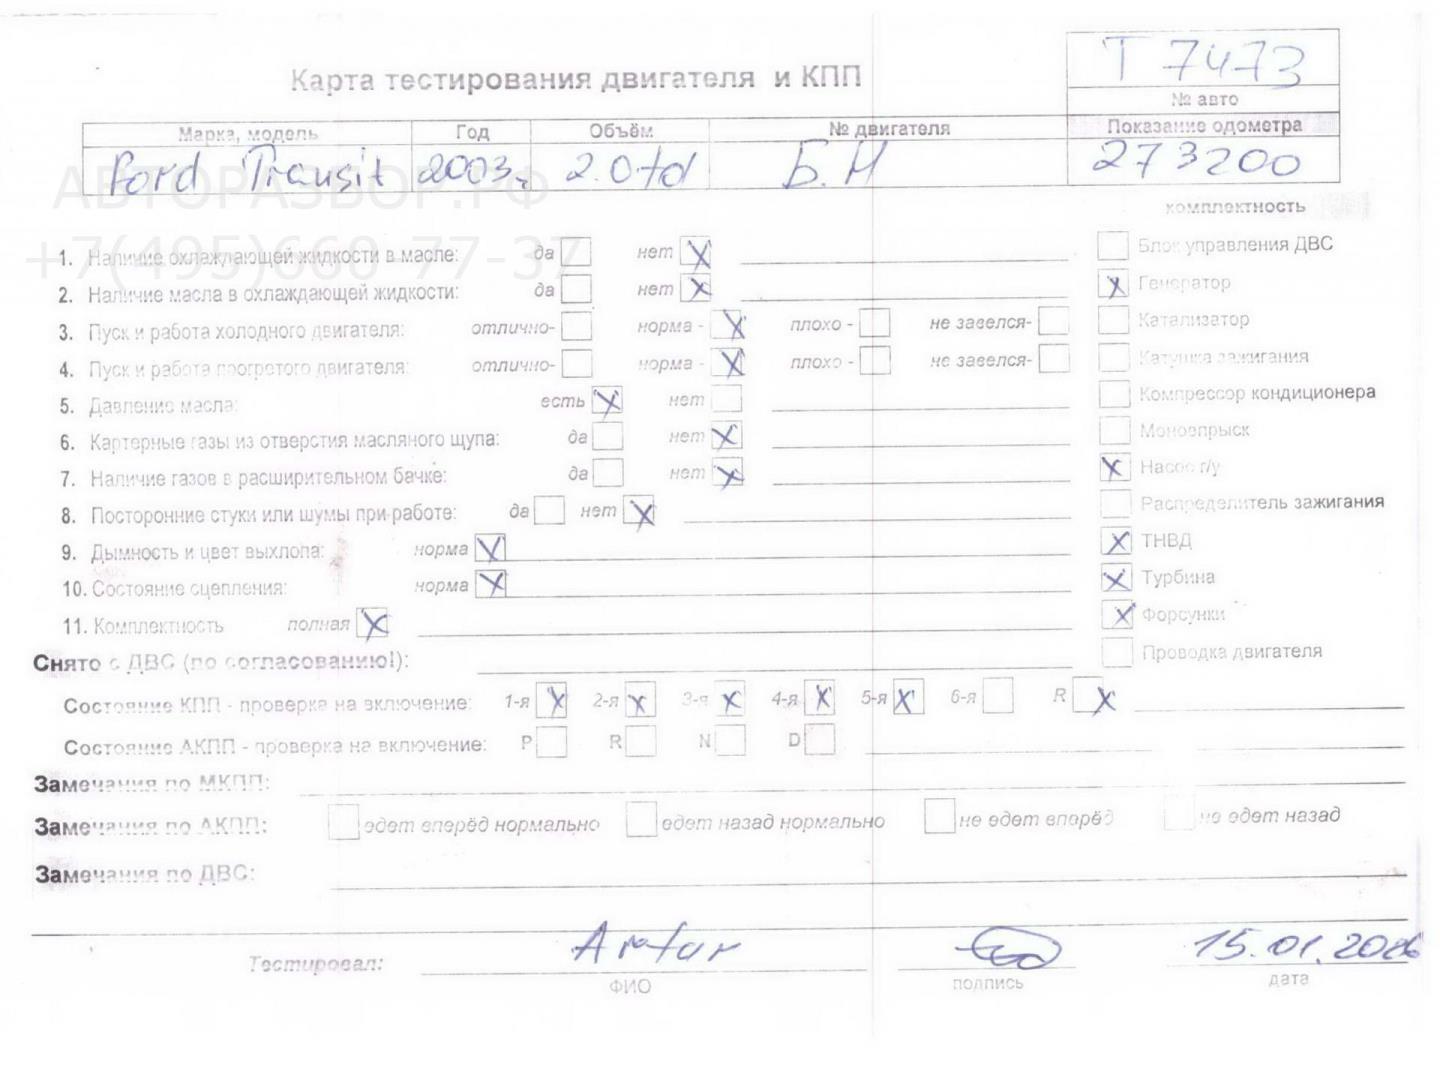 Т 7473
Карта тестирования двигателя и КПП
№ авто
Марка, модель Год Объём № двигателя Показание одометра
Ford Transit 2003г. 2.0td Б.Н 273200
АВТОРАЗБОР.РФ
комплектность
+7(495)660-77-37
1. Наличие охлаждающей жидкости в масле: да нет X Блок управления ДВС
2. Наличие масла в охлаждающей жидкости: да нет X X Генератор
3. Пуск и работа холодного двигателя: отлично- норма - X плохо - не завелся- Катализатор
4. Пуск и работа прогретого двигателя: отлично- норма - X плохо - не завелся- Катушка зажигания
5. Давление масла: есть X нет Компрессор кондиционера
6. Картерные газы из отверстия масляного щупа: да нет X Моновпрыск
7. Наличие газов в расширительном бачке: да нет X X Насос г/у
8. Посторонние стуки или шумы при работе: да нет X Распределитель зажигания
9. Дымность и цвет выхлопа: норма X X ТНВД
10. Состояние сцепления: норма X X Турбина
11. Комплектность полная X X Форсунки
Снято с ДВС (по согласованию!): Проводка двигателя
Состояние КПП - проверка на включение: 1-я X 2-я X 3-я X 4-я X 5-я X 6-я R X
Состояние АКПП - проверка на включение: P R N D
Замечания по МКПП:
Замечания по АКПП: едет вперёд нормально едет назад нормально не едет вперёд не едет назад
Замечания по ДВС:
Тестировал: Artur 15.01.2026
ФИО подпись дата